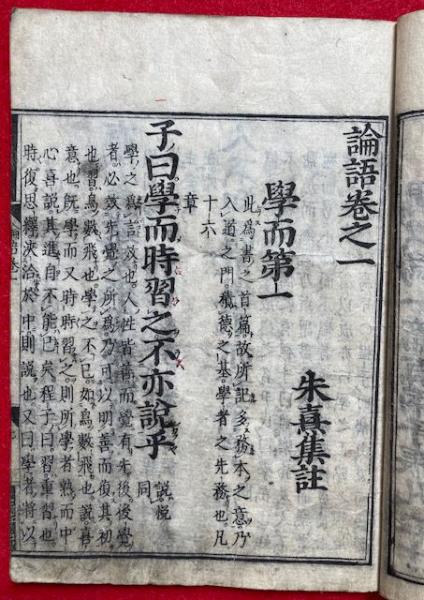 論語卷之一
朱熹集註
學而第一
此爲書之首篇故所記多務本之意乃
入道之門積德之基學者之先務也凡
十六
章
子曰學而時習之不亦說乎
說悅
同
學之爲言效也人性皆善而覺有先後後覺
者必效先覺之所爲乃可以明善而復其初
也習鳥數飛也學之不已如鳥數飛也說喜
意也既學而又時時習之則所學者熟而中
心喜說其進自不能已矣程子曰習重習也
時復思繹浹洽於中則說也又曰學者將以